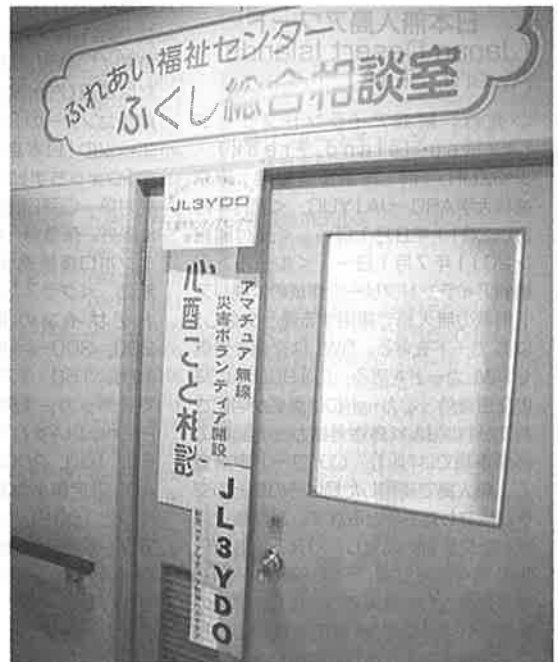 ふれあい福祉センター
ふくし総合相談室
JL3YDO
心配ごと相談
アマチュア無線
災害ボランティア開設
JL3YDO